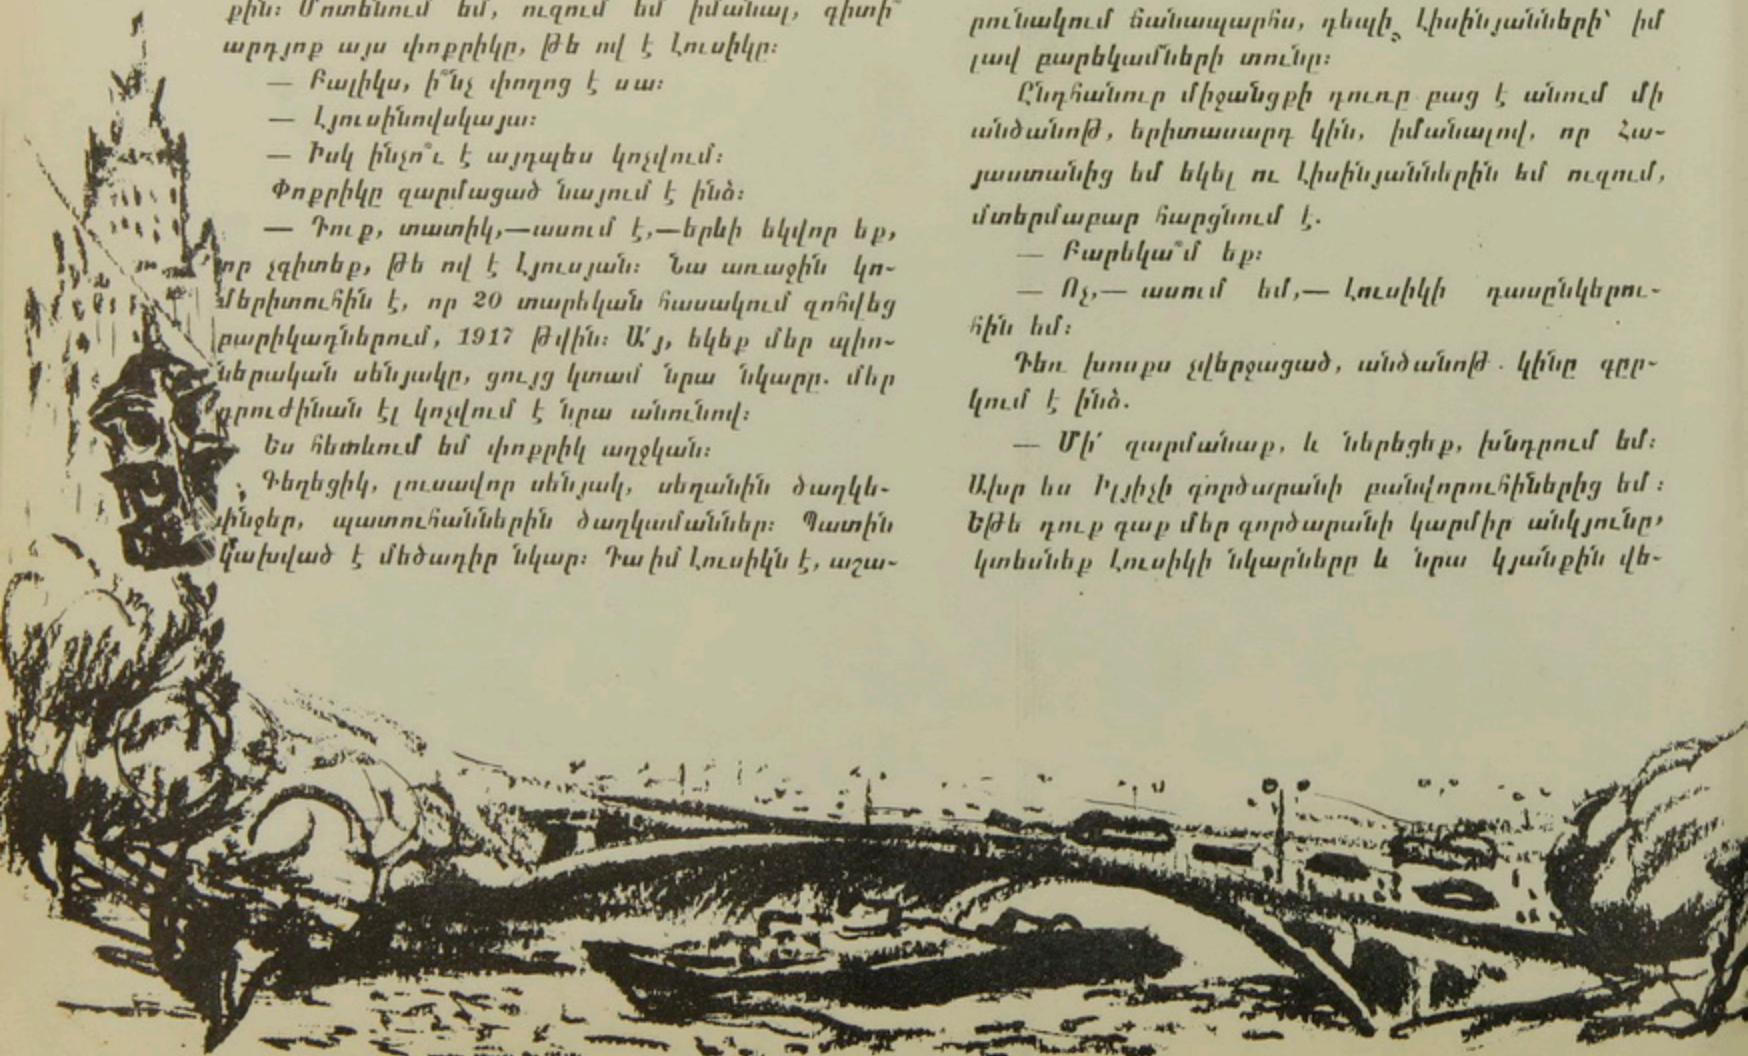 քին։ Մոտենում եմ, ուզում եմ իմանալ, գիտի՞
արդյոք այս փոքրիկը, թե ով է Լուսիկը։
— Բալիկս, ի՞նչ փողոց է սա։
— Լյուսինովսկայա։
— Իսկ ինչո՞ւ է այդպես կոչվում։
Փոքրիկը զարմացած նայում է ինձ։
— Դուք, տատիկ,—ասում է,—երևի եկվոր եք,
որ չգիտեք, թե ով է Լյուսյան։ Նա առաջին կո-
մերիտուհին է, որ 20 տարեկան հասակում զոհվեց
բարիկադներում, 1917 թվին։ Ա՛յ, եկեք մեր պիո-
ներական սենյակը, ցույց կտամ նրա նկարը. մեր
դրուժինան էլ կոչվում է նրա անունով։
Ես հետևում եմ փոքրիկ աղջկան։
Գեղեցիկ, լուսավոր սենյակ, սեղանին ծաղկե-
փնջեր, պատուհաններին ծաղկամաններ։ Պատին
կախված է մեծադիր նկար։ Դա իմ Լուսիկն է, աշա-
րունակում ճանապարհս, դեպի Լիսինյանների՝ իմ
լավ բարեկամների տունը։
Ընդհանուր միջանցքի դուռը բաց է անում մի
անծանոթ, երիտասարդ կին, իմանալով, որ Հա-
յաստանից եմ եկել ու Լիսինյաններին եմ ուզում,
մտերմաբար հարցնում է.
— Բարեկա՞մ եք։
— Ոչ,— ասում եմ,— Լուսիկի դասընկերու-
հին եմ։
Դեռ խոսքս չվերջացած, անծանոթ կինը գըր-
կում է ինձ.
— Մի՛ զարմանաք, և ներեցեք, խնդրում եմ։
Ախր ես Իլյիչի գործարանի բանվորուհիներից եմ։
Եթե դուք գաք մեր գործարանի կարմիր անկյունը,
կտեսնեք Լուսիկի նկարները և նրա կյանքին վե-